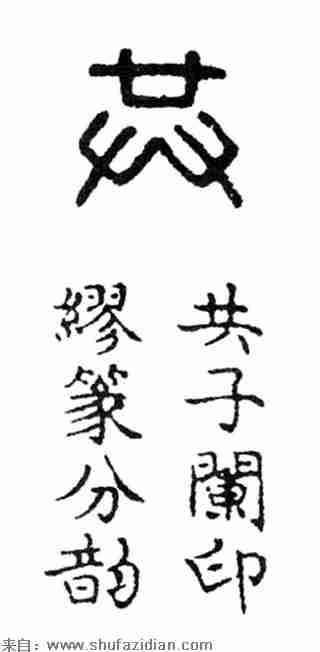 共
共子闌印
繆篆分韵
来自：www.shufazidian.com